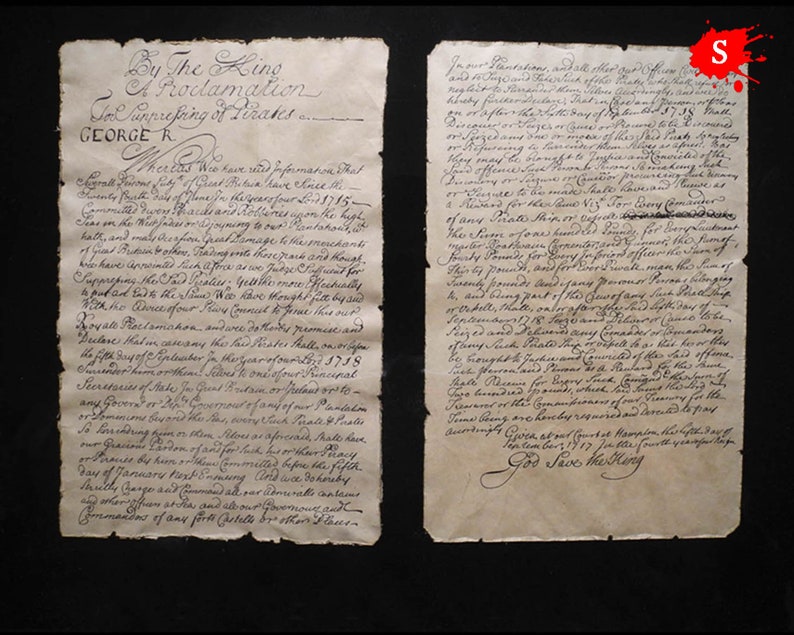 By The King
A Proclamation
For Suppressing of Pirates
GEORGE R.
Whereas Wee have reced Information That
Severall Persons Subjts of Great Britain have Since the
Twenty fourth day of June In the year of our Lord 1715
Committed divers Piracies and Robberies upon the high
Seas in the West Indies or adjoyning to our Plantations, wh
hath, and may Occasion Great Damage to the merchants
of Great Britain & others, Trading unto those parts and though
wee have appointed Such a force as wee Judge Sufficient for
Suppressing the Said Piracies Yett the more Effectually
to putt an End to the Same Wee have thought fitt by and
With the Advice of our Privy Council to Issue this our
Royall Proclamation, and wee do hereby promise and
Declare that in case any the Said Pirates Shall on or before
the fifth day of September In the year of our Lord 1718
Surrender him or them Selves to one of our Principal
Secretaries of State In Great Britain or Ireland or to
any Governor or Depty Governor of any of our Plantations
or Dominions beyond the Seas, every Such Pirate & Pirates
So Surrendring him or them Selves as aforesaid, Shall have
our Gracious Pardon of and for Such his or their Piracy
or Piracies by him or them Committed before the fifth
day of January next Ensueing And wee do hereby
Strictly Charge and Command all our Admiralls Captains
and other officers at Sea and all our Governours and
Commanders of any forts Castells or other Places
In our Plantations, and all other our Officers
and to Seize and Take Such of the Pirates who Shall refuse or
neglect to Surrender them Selves Accordingly, and wee do
hereby further Declare, That in Case any Person, or Persons
on or after the Sixth day of September 1718 Shall
Discover or Seize or Cause or Procure to be Discovered
or Seized any one or more of the Said Pirates So neglecting
or Refusing to Surrender them Selves as afores. So as
they may be brought to Justice and Convicted of the
Said offence Such Person or Persons So making Such
Discovery or Seizure or Causing or procuring Such discovery
or Seizure to be made Shall have and Receive as
a Reward for the Same Viz For Every Comander
of any Pirate Ship or vessele
the Sum of one hundred Pounds, for every Lieutenant
master Boatswain Carpenter, and Gunner, the Sum of
fourty Pounds for Every Inferiord officer the Sum of
Thirty pounds, and for Ever Private man the Sum of
Twenty pounds And if any person or Persons belonging
to, and being part of the Crew of any Such Pirate Ship
or Vessell, Shall, on or after the Said Sixth day of
September 1718 Seize and Deliver or Cause to be
Seized and Delivered any Comander or Comanders
of any Such Pirate Ship or vessele So as that he or they
be brought to Justice and Convicted of the Said offence
Such Person and Persons as a Reward for the Same
Shall Receive for Every Such Comandr the Sum of
Two hundred Pounds, which Said Sums the Lord
Treasurer or the Commissioners of our Treasury for the
Time being are hereby required and directed to pay
accordingly
Given at our Court at Hampton the fifth day of
September, 1717 In the fourth year of our Reign
God Save the King
S